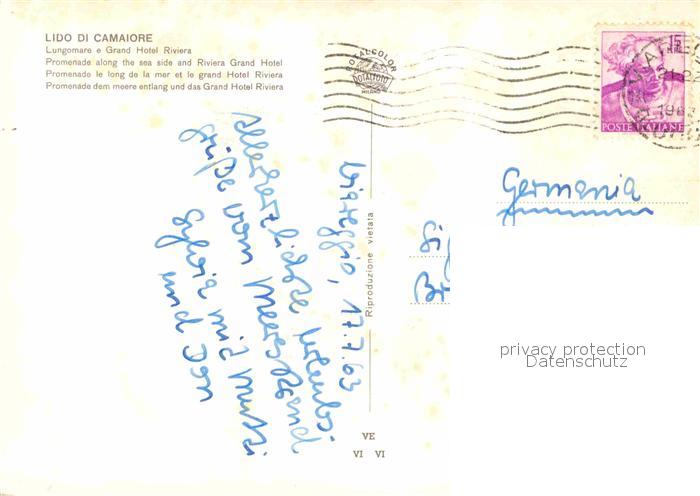 LIDO DI CAMAIORE
Lungomare e Grand Hotel Riviera
Promenade along the sea side and Riviera Grand Hotel
Promenade le long de la mer et le grand Hotel Riviera
Promenade dem meere entlang und das Grand Hotel Riviera
ROTALCOLOR
ROTALFOTO
MILANO
15
POSTE ITALIANE
Viareggio, 17.7.63
Allerherzlichste Urlaubs
grüße vom Meeresstrand
Sylvia mit Mutti
und Don
Riproduzione vietata
Germania
Br
privacy protection
Datenschutz
VE
VI VI